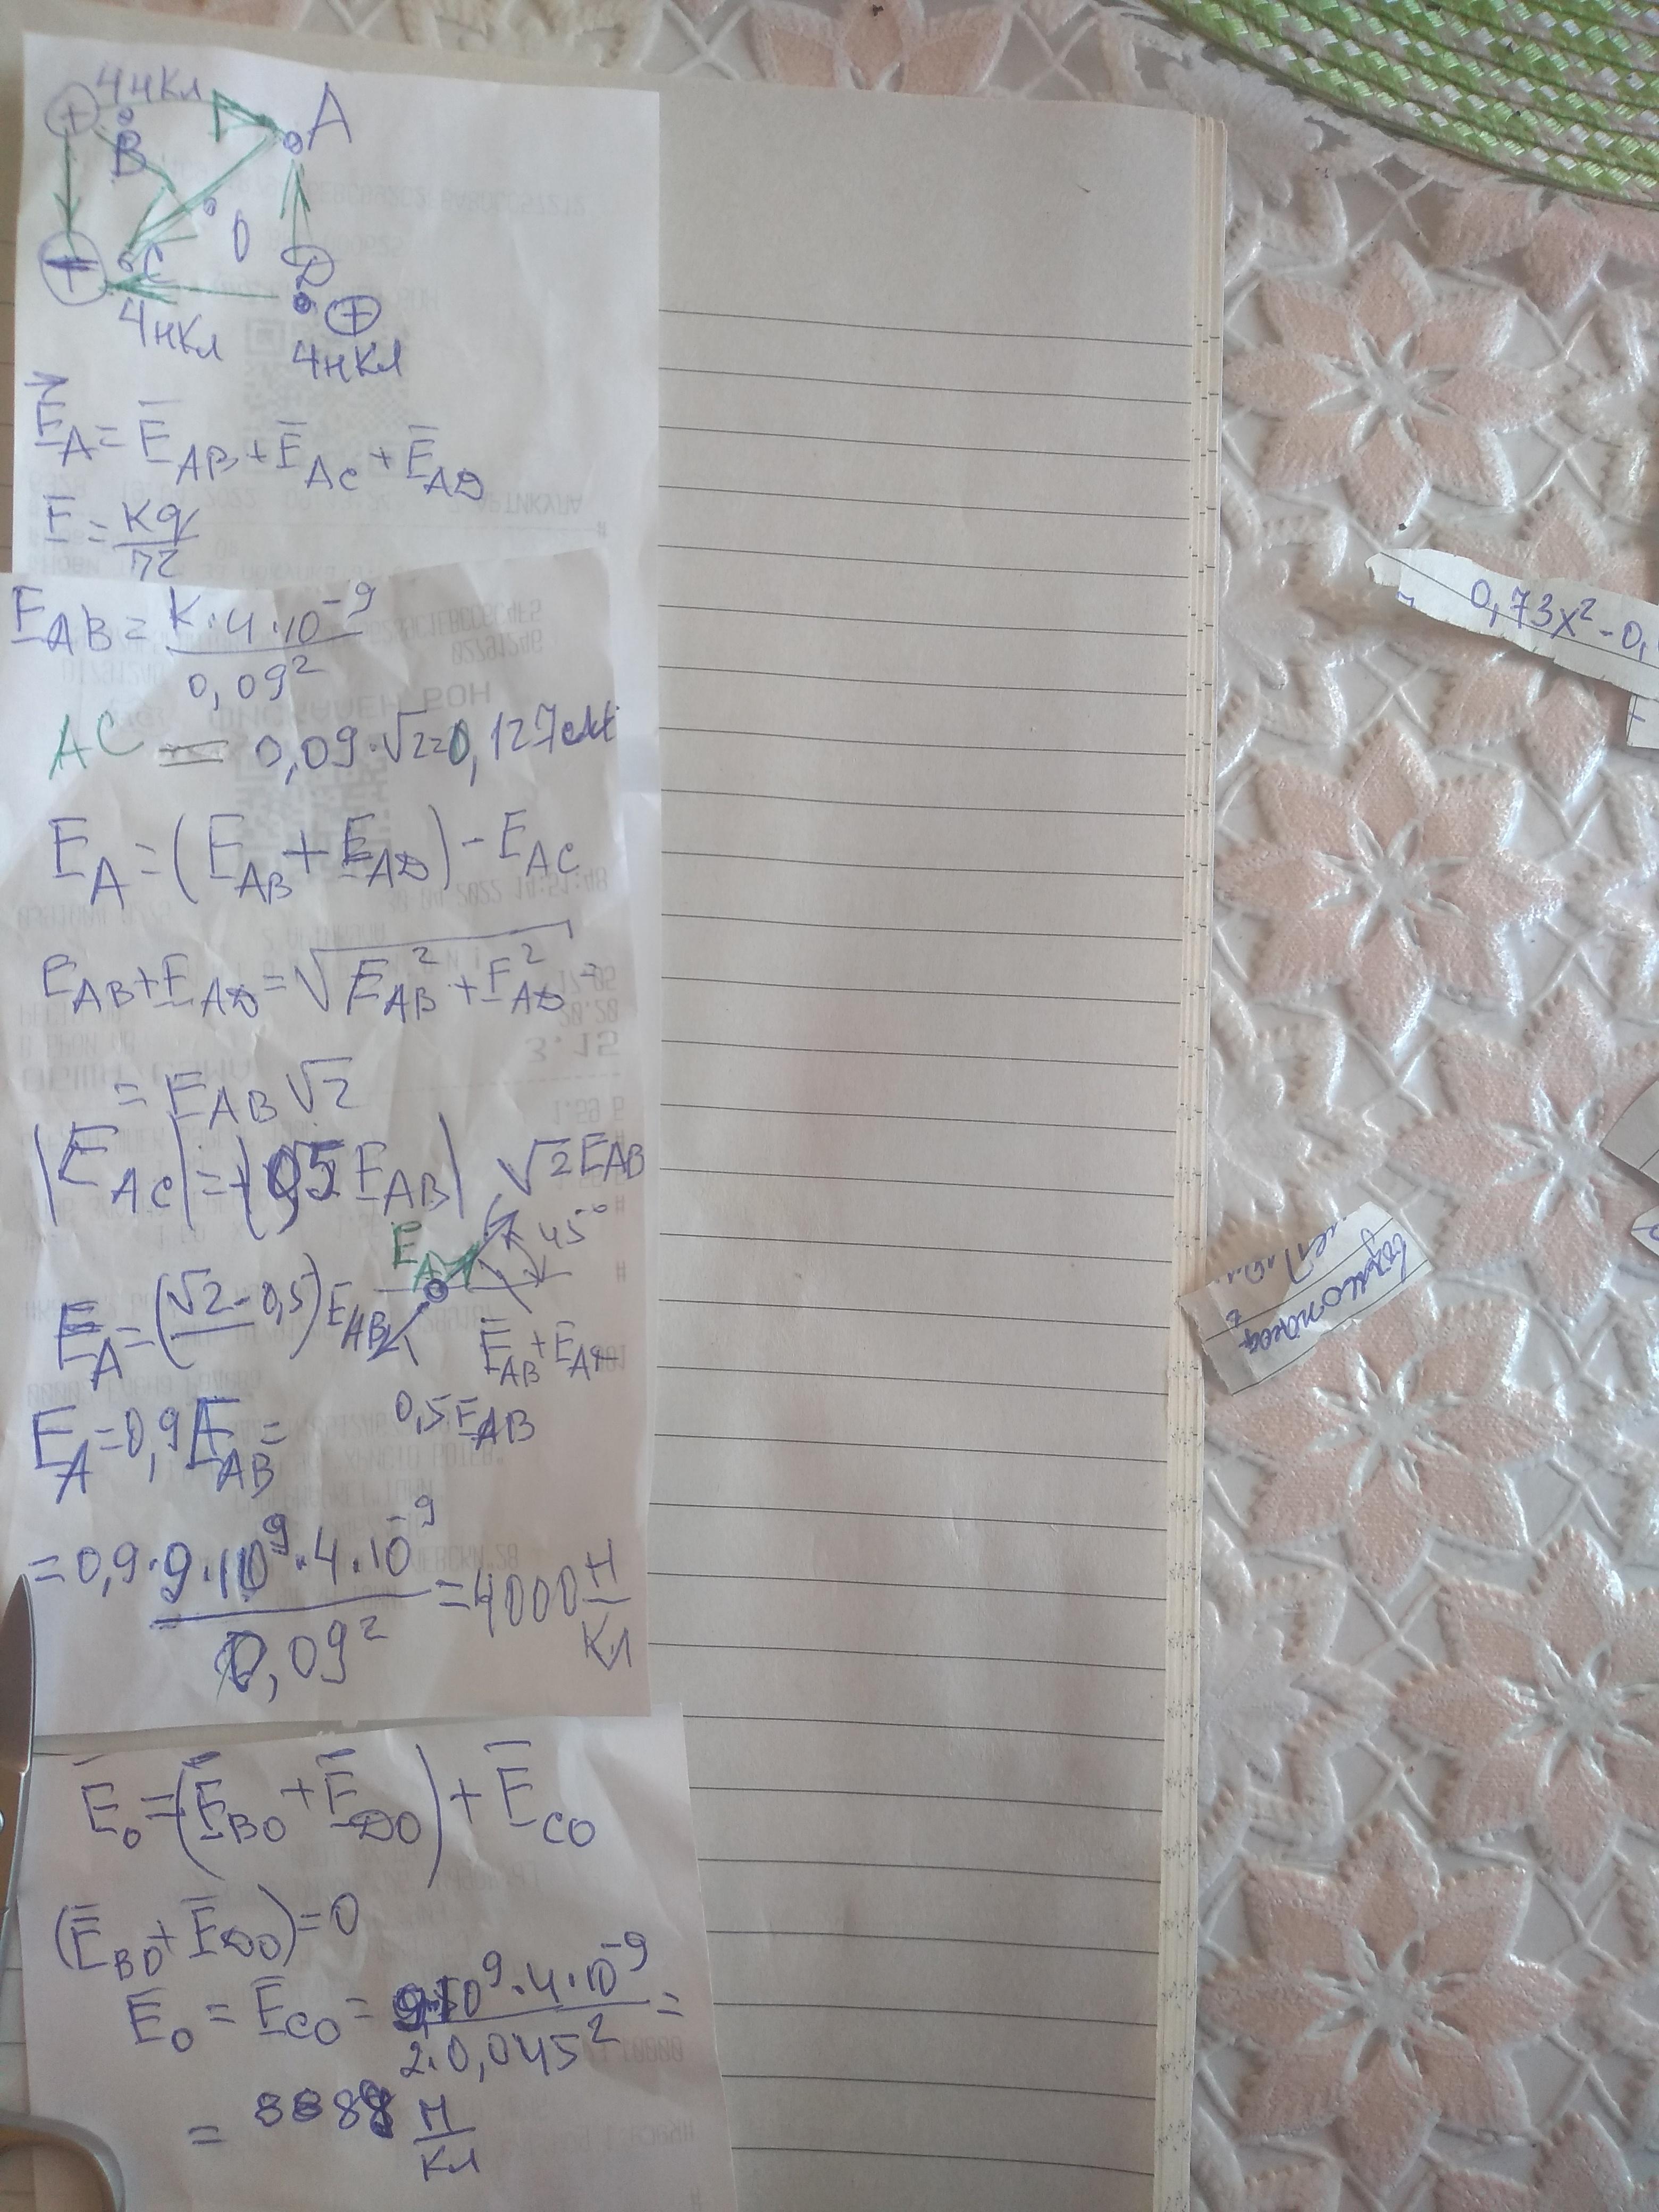 4нКл
+ B A
O
C D
4нКл +
4нКл
E_A = E_AB + E_AC + E_AD
E = Kq/r2
E_AB = K·4·10^-9 / 0,09^2
AC = 0,09·√2=0,127см
E_A = (E_AB + E_AD) - E_AC
E_AB + E_AD = √(E_AB^2 + E_AD^2) =
= E_AB √2
|E_AC| = |0,5 E_AB| √2 E_AB
E_A 45°
E_A = (√2 - 0,5) E_AB
E_AB + E_AD
0,5 E_AB
E_A = 0,9 E_AB =
= 0,9·9·10^9·4·10^-9 / 0,09^2 = 4000 Н/Кл
E_0 = (E_BO + E_DO) + E_CO
(E_BO + E_DO) = 0
E_0 = E_CO = 9·10^9·4·10^-9 / 2·0,045^2 =
= 8888 Н/Кл
0,73x^2 - 0,